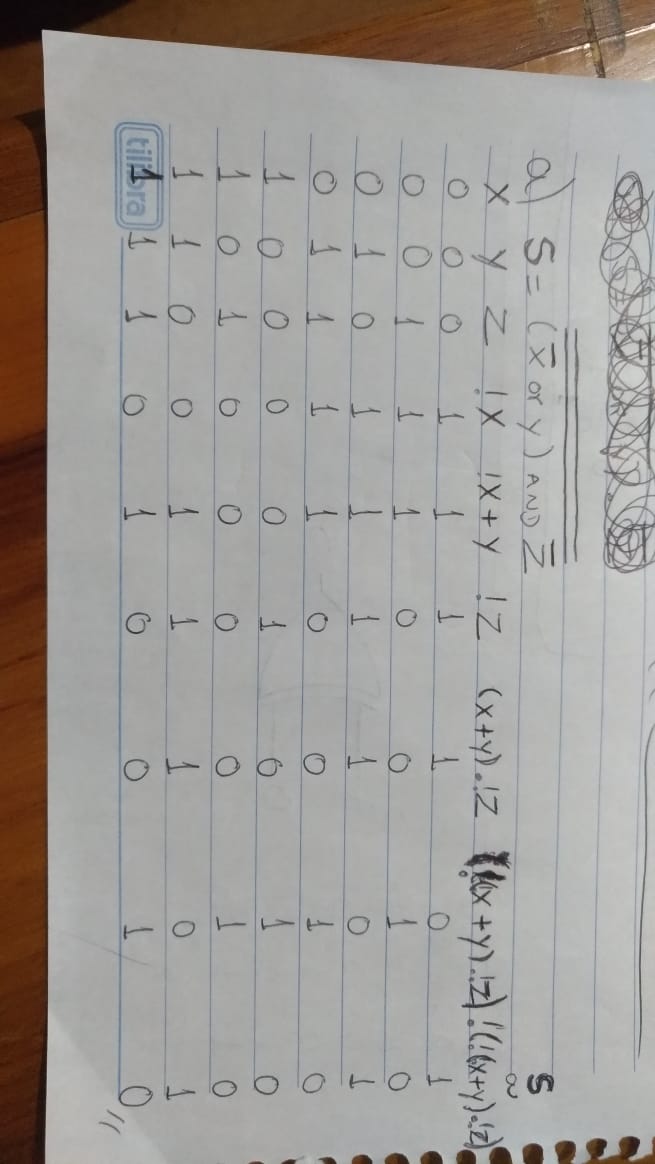 a) S = (x̄ or y) AND z̄
S
x y z !x !x+y !z (x+y).!z !((x+y).!z) !(!((x+y).!z))
0 0 0 1 1 1 1 0 1
0 0 1 1 1 0 0 1 0
0 1 0 1 1 1 1 0 1
0 1 1 1 1 0 0 1 0
1 0 0 0 0 1 0 1 0
1 0 1 0 0 0 0 1 0
1 1 0 0 1 1 1 0 1
1 1 1 0 1 0 0 1 0 //
tilibra